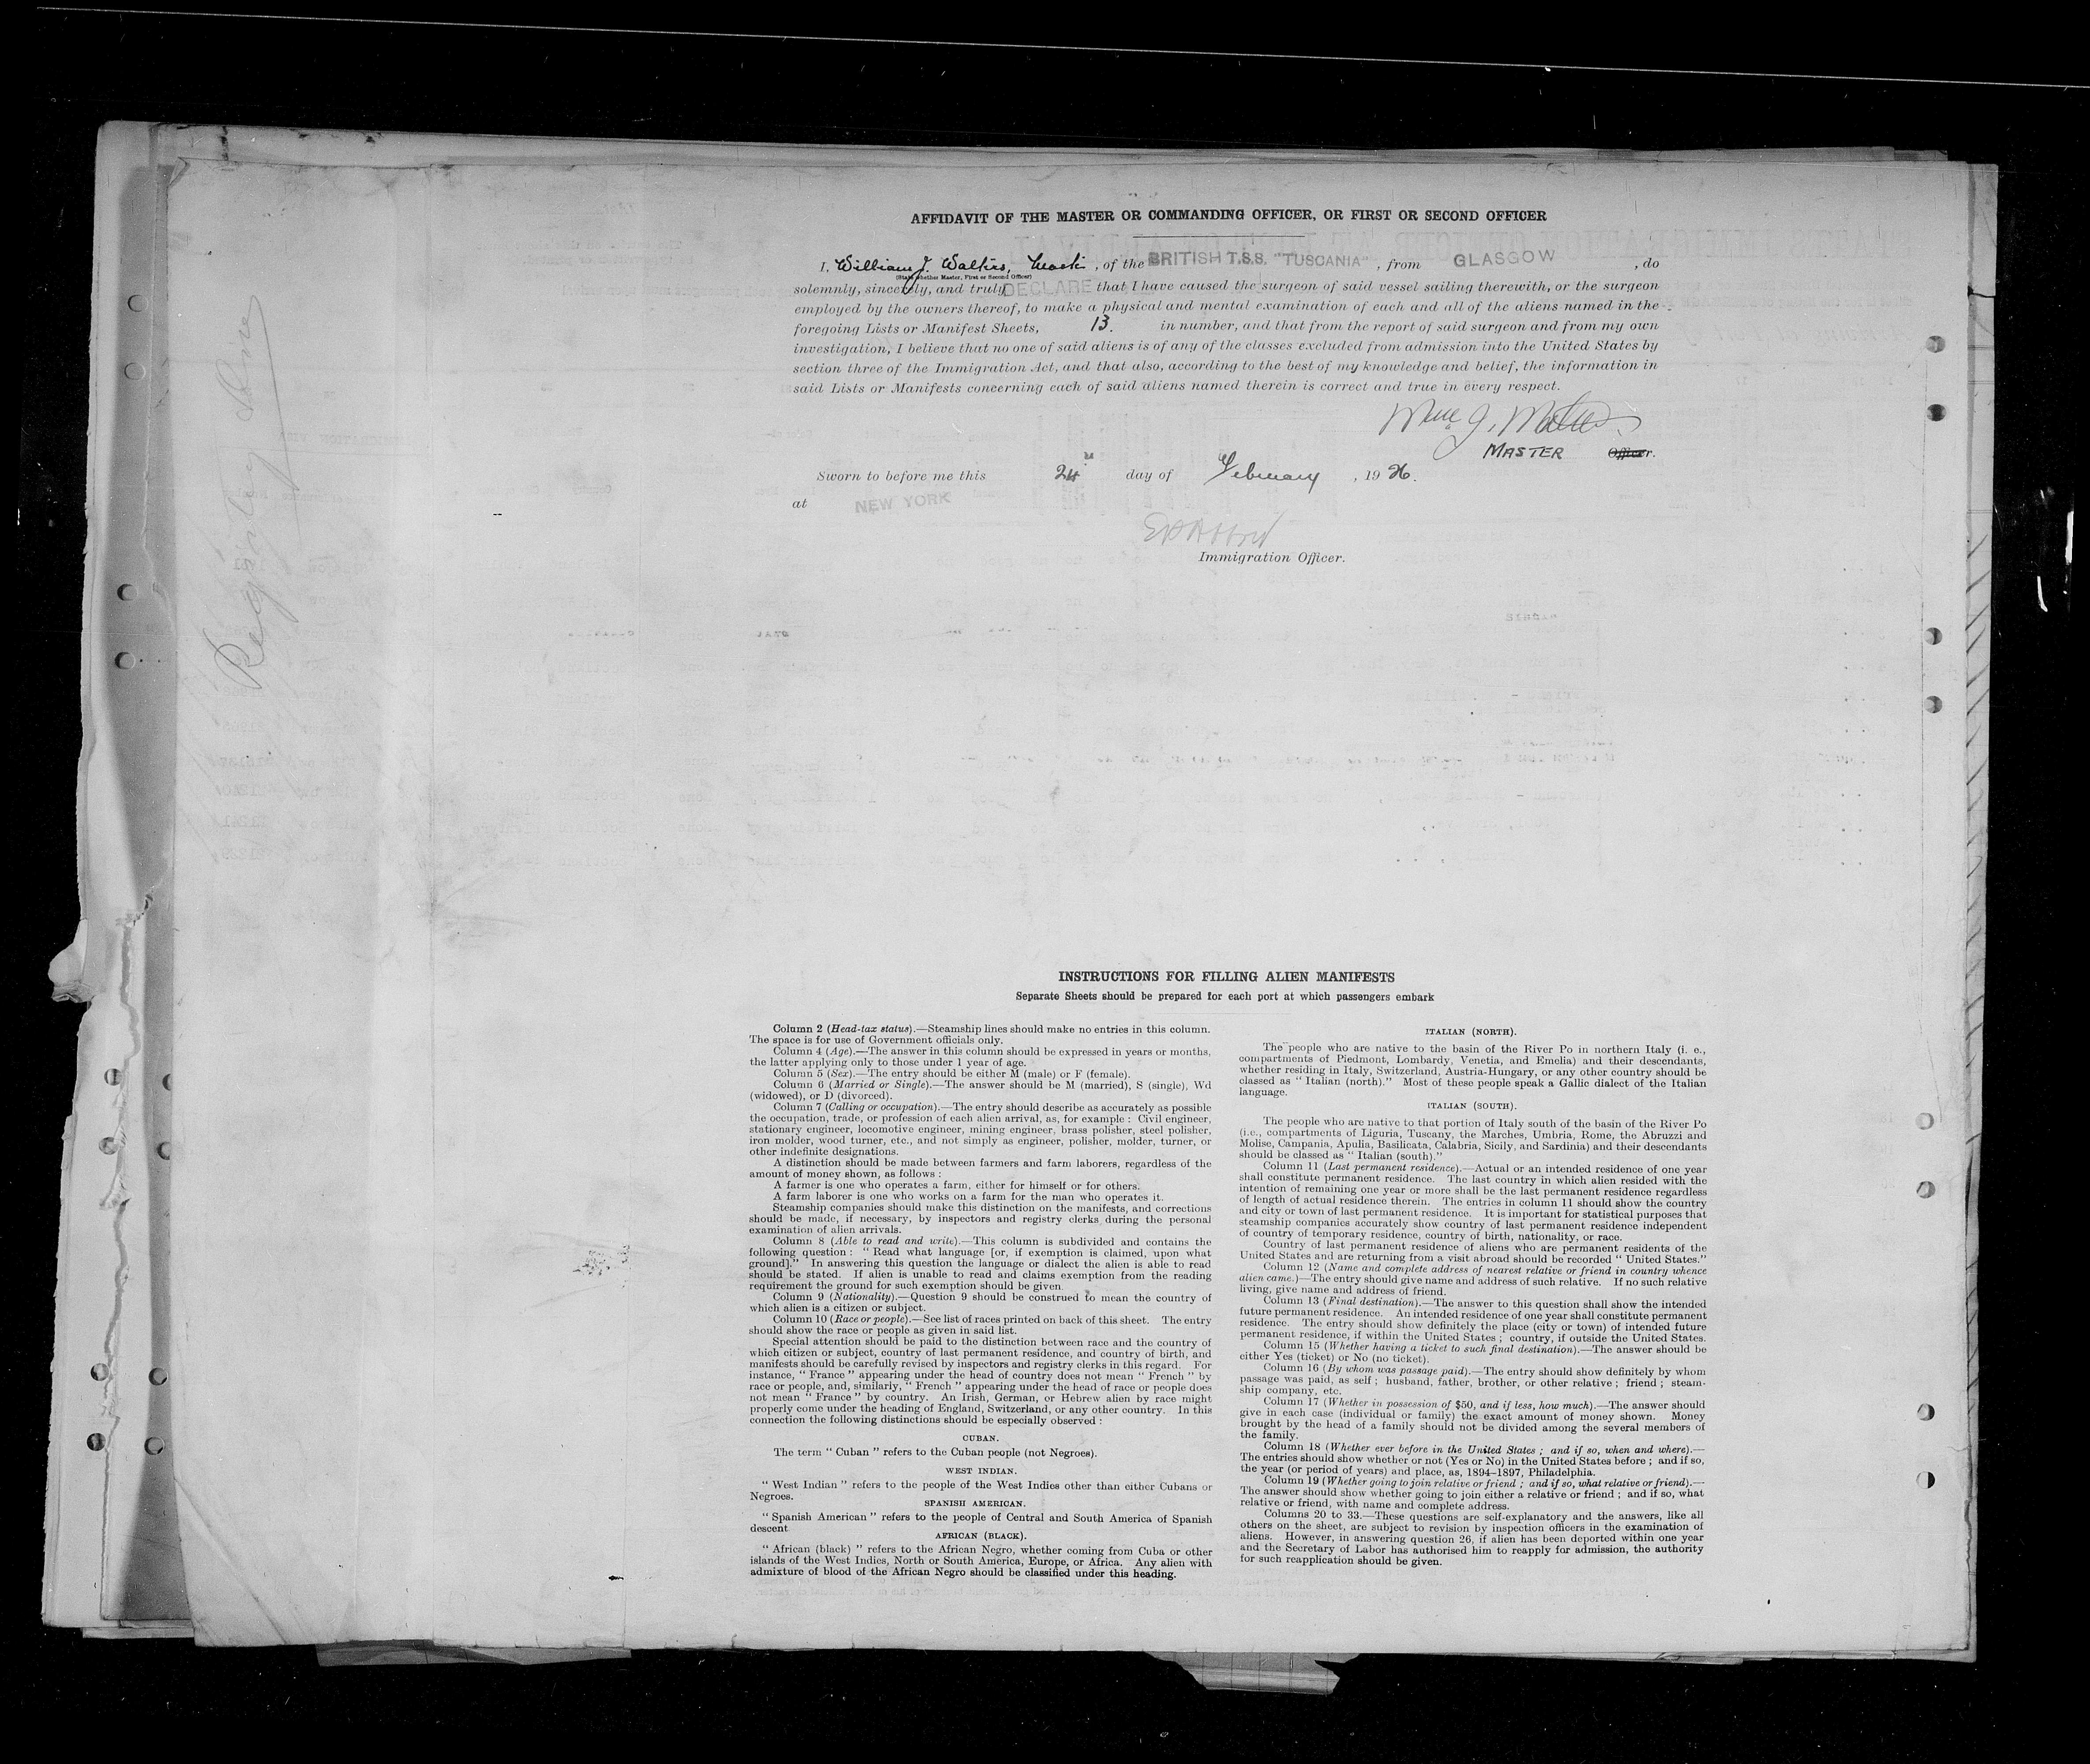 AFFIDAVIT OF THE MASTER OR COMMANDING OFFICER, OR FIRST OR SECOND OFFICER
I, William J. Walters, , of the BRITISH T.S.S. "TUSCANIA" , from GLASGOW , do
(State whether Master, First or Second Officer)
solemnly, sincerely, and truly DECLARE that I have caused the surgeon of said vessel sailing therewith, or the surgeon
employed by the owners thereof, to make a physical and mental examination of each and all of the aliens named in the
foregoing Lists or Manifest Sheets, 13. in number, and that from the report of said surgeon and from my own
investigation, I believe that no one of said aliens is of any of the classes excluded from admission into the United States by
section three of the Immigration Act, and that also, according to the best of my knowledge and belief, the information in
said Lists or Manifests concerning each of said aliens named therein is correct and true in every respect.
MASTER Officer.
Sworn to before me this 24 day of February , 1926.
at NEW YORK
Immigration Officer.
INSTRUCTIONS FOR FILLING ALIEN MANIFESTS
Separate Sheets should be prepared for each port at which passengers embark
Column 2 (Head-tax status).—Steamship lines should make no entries in this column.
The space is for use of Government officials only.
Column 4 (Age).—The answer in this column should be expressed in years or months,
the latter applying only to those under 1 year of age.
Column 5 (Sex).—The entry should be either M (male) or F (female).
Column 6 (Married or Single).—The answer should be M (married), S (single), Wd
(widowed), or D (divorced).
Column 7 (Calling or occupation).—The entry should describe as accurately as possible
the occupation, trade, or profession of each alien arrival, as, for example : Civil engineer,
stationary engineer, locomotive engineer, mining engineer, brass polisher, steel polisher,
iron molder, wood turner, etc., and not simply as engineer, polisher, molder, turner, or
other indefinite designations.
A distinction should be made between farmers and farm laborers, regardless of the
amount of money shown, as follows :
A farmer is one who operates a farm, either for himself or for others.
A farm laborer is one who works on a farm for the man who operates it.
Steamship companies should make this distinction on the manifests, and corrections
should be made, if necessary, by inspectors and registry clerks during the personal
examination of alien arrivals.
Column 8 (Able to read and write).—This column is subdivided and contains the
following question : " Read what language [or, if exemption is claimed, upon what
ground]." In answering this question the language or dialect the alien is able to read
should be stated. If alien is unable to read and claims exemption from the reading
requirement the ground for such exemption should be given.
Column 9 (Nationality).—Question 9 should be construed to mean the country of
which alien is a citizen or subject.
Column 10 (Race or people).—See list of races printed on back of this sheet. The entry
should show the race or people as given in said list.
Special attention should be paid to the distinction between race and the country of
which citizen or subject, country of last permanent residence, and country of birth, and
manifests should be carefully revised by inspectors and registry clerks in this regard. For
instance, " France " appearing under the head of country does not mean " French " by
race or people, and, similarly, " French " appearing under the head of race or people does
not mean " France " by country. An Irish, German, or Hebrew alien by race might
properly come under the heading of England, Switzerland, or any other country. In this
connection the following distinctions should be especially observed :
CUBAN.
The term " Cuban " refers to the Cuban people (not Negroes).
WEST INDIAN.
" West Indian " refers to the people of the West Indies other than either Cubans or
Negroes.
SPANISH AMERICAN.
" Spanish American " refers to the people of Central and South America of Spanish
descent
AFRICAN (BLACK).
" African (black) " refers to the African Negro, whether coming from Cuba or other
islands of the West Indies, North or South America, Europe, or Africa. Any alien with
admixture of blood of the African Negro should be classified under this heading.
ITALIAN (NORTH).
The people who are native to the basin of the River Po in northern Italy (i. e.,
compartments of Piedmont, Lombardy, Venetia, and Emelia) and their descendants,
whether residing in Italy, Switzerland, Austria-Hungary, or any other country should be
classed as " Italian (north)." Most of these people speak a Gallic dialect of the Italian
language.
ITALIAN (SOUTH).
The people who are native to that portion of Italy south of the basin of the River Po
(i.e., compartments of Liguria, Tuscany, the Marches, Umbria, Rome, the Abruzzi and
Molise, Campania, Apulia, Basilicata, Calabria, Sicily, and Sardinia) and their descendants
should be classed as " Italian (south)."
Column 11 (Last permanent residence).—Actual or an intended residence of one year
shall constitute permanent residence. The last country in which alien resided with the
intention of remaining one year or more shall be the last permanent residence regardless
of length of actual residence therein. The entries in column 11 should show the country
and city or town of last permanent residence. It is important for statistical purposes that
steamship companies accurately show country of last permanent residence independent
of country of temporary residence, country of birth, nationality, or race.
Country of last permanent residence of aliens who are permanent residents of the
United States and are returning from a visit abroad should be recorded " United States."
Column 12 (Name and complete address of nearest relative or friend in country whence
alien came.)—The entry should give name and address of such relative. If no such relative
living, give name and address of friend.
Column 13 (Final destination).—The answer to this question shall show the intended
future permanent residence. An intended residence of one year shall constitute permanent
residence. The entry should show definitely the place (city or town) of intended future
permanent residence, if within the United States ; country, if outside the United States.
Column 15 (Whether having a ticket to such final destination).—The answer should be
either Yes (ticket) or No (no ticket).
Column 16 (By whom was passage paid).—The entry should show definitely by whom
passage was paid, as self ; husband, father, brother, or other relative ; friend ; steam-
ship company, etc.
Column 17 (Whether in possession of $50, and if less, how much).—The answer should
give in each case (individual or family) the exact amount of money shown. Money
brought by the head of a family should not be divided among the several members of
the family.
Column 18 (Whether ever before in the United States ; and if so, when and where).—
The entries should show whether or not (Yes or No) in the United States before ; and if so,
the year (or period of years) and place, as, 1894–1897, Philadelphia.
Column 19 (Whether going to join relative or friend ; and if so, what relative or friend).—
The answer should show whether going to join either a relative or friend ; and if so, what
relative or friend, with name and complete address.
Columns 20 to 33.—These questions are self-explanatory and the answers, like all
others on the sheet, are subject to revision by inspection officers in the examination of
aliens. However, in answering question 26, if alien has been deported within one year
and the Secretary of Labor has authorised him to reapply for admission, the authority
for such reapplication should be given.